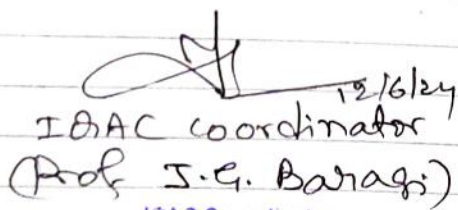 12/6/24
IQAC Coordinator
(Prof. J.G. Baragi)